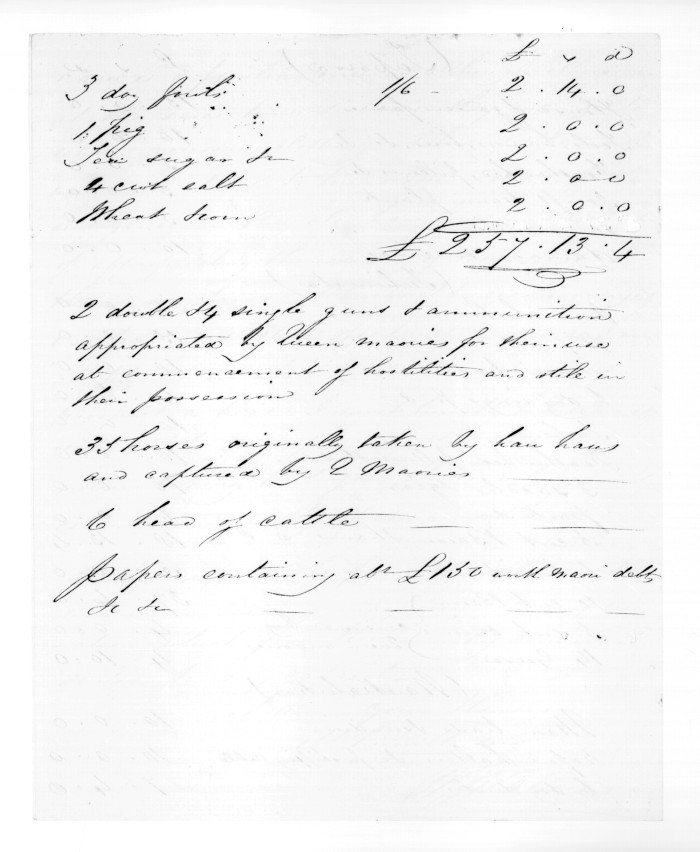 £ s d
3 doz fowls 1/6 - 2 . 14 . 0
1 pig 2 . 0 . 0
Tea sugar &c 2 . 0 . 0
4 cwt salt 2 . 0 0
Wheat &corn 2 . 0 . 0
£ 257 . 13 . 4
2 double &4 single guns & ammunition
appropriated by Queen maories for their use
at commencement of hostilities and still in
their possession
35 horses originally taken by hau haus
and captured by Q Maories
6 head of cattle
Papers containing abt £150 worth maori debts
&c &c